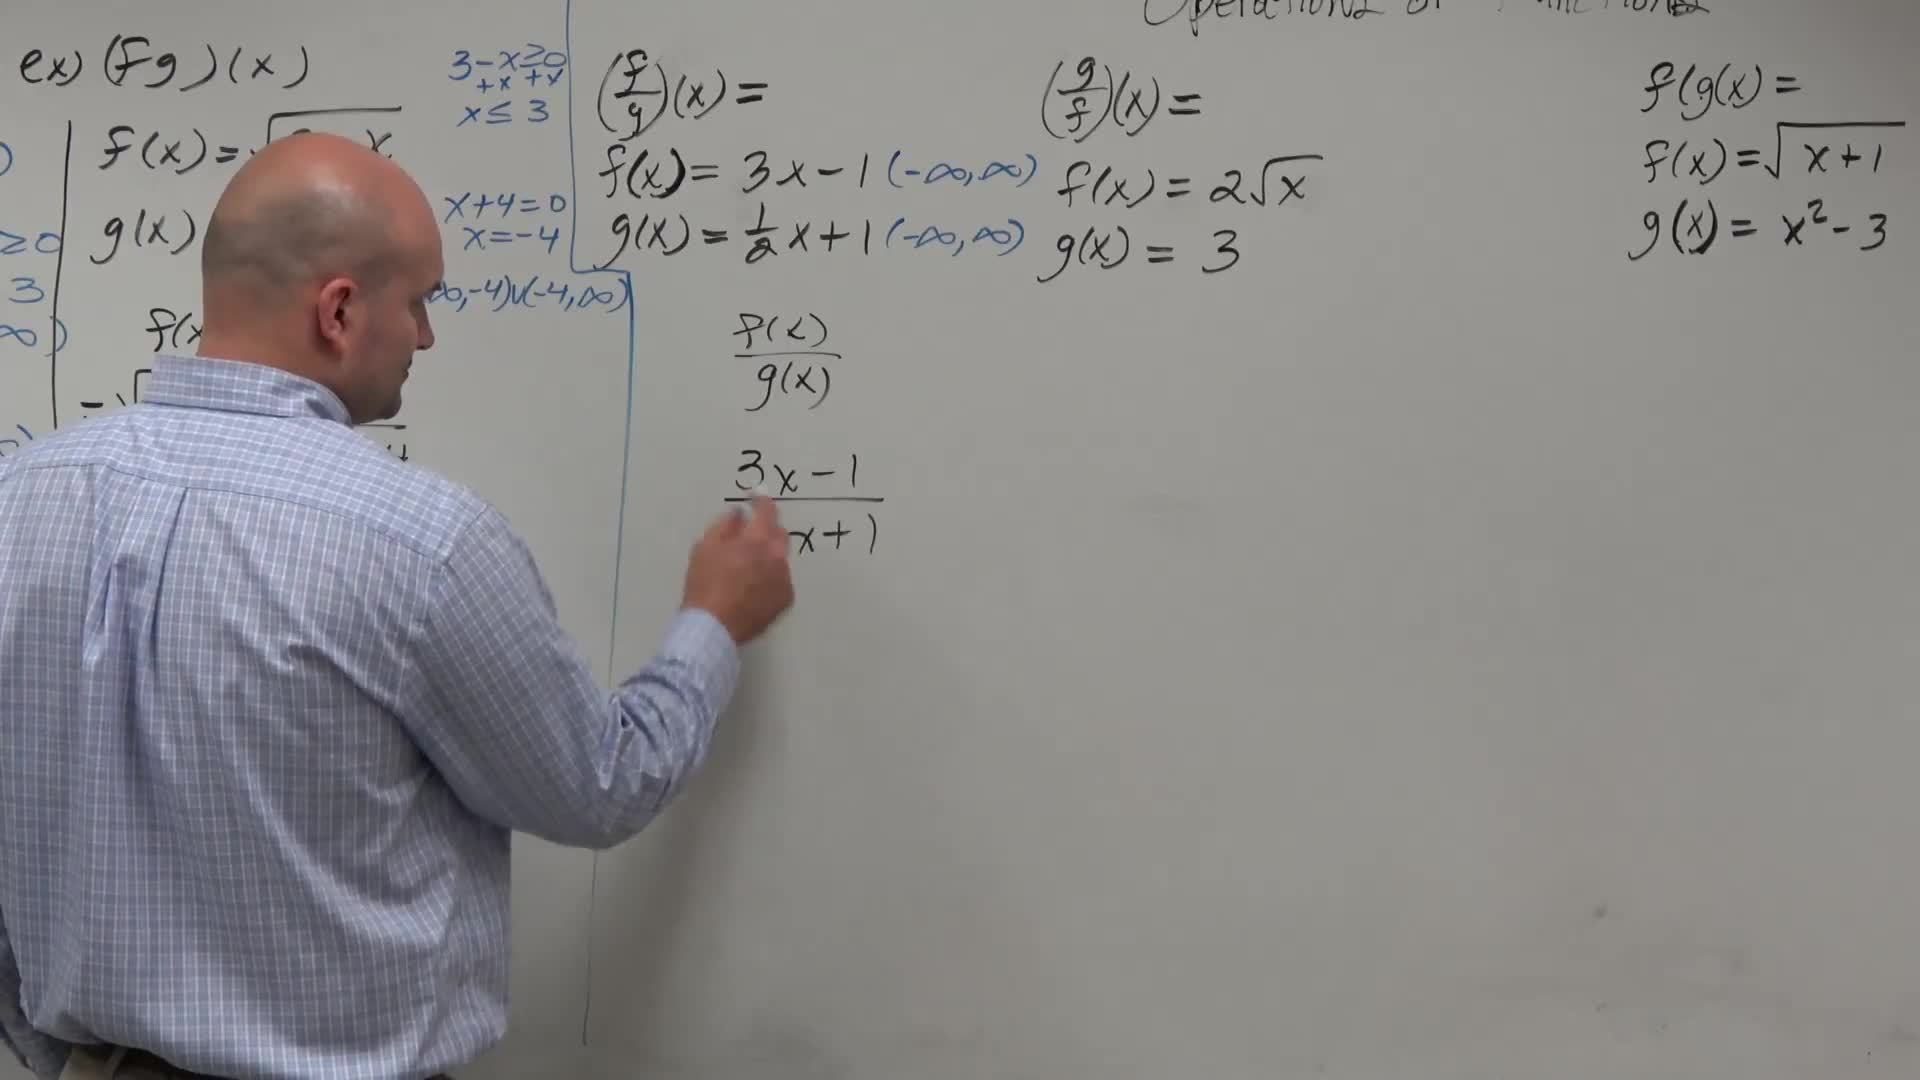 Operations of Functions
ex) (fg)(x)
f(x)=√ x
g(x)
f(x
= √
3-x≥0
+x +x
x≤ 3
x+4=0
x=-4
∞,-4)∪(-4,∞)
≥0
3
∞)
(f/g)(x) =
f(x) = 3x-1 (-∞,∞)
g(x) = 1/2 x+1 (-∞,∞)
f(x)
g(x)
3x-1
x+1
(g/f)(x) =
f(x) = 2√x
g(x) = 3
f(g(x) =
f(x)=√x+1
g(x) = x²-3